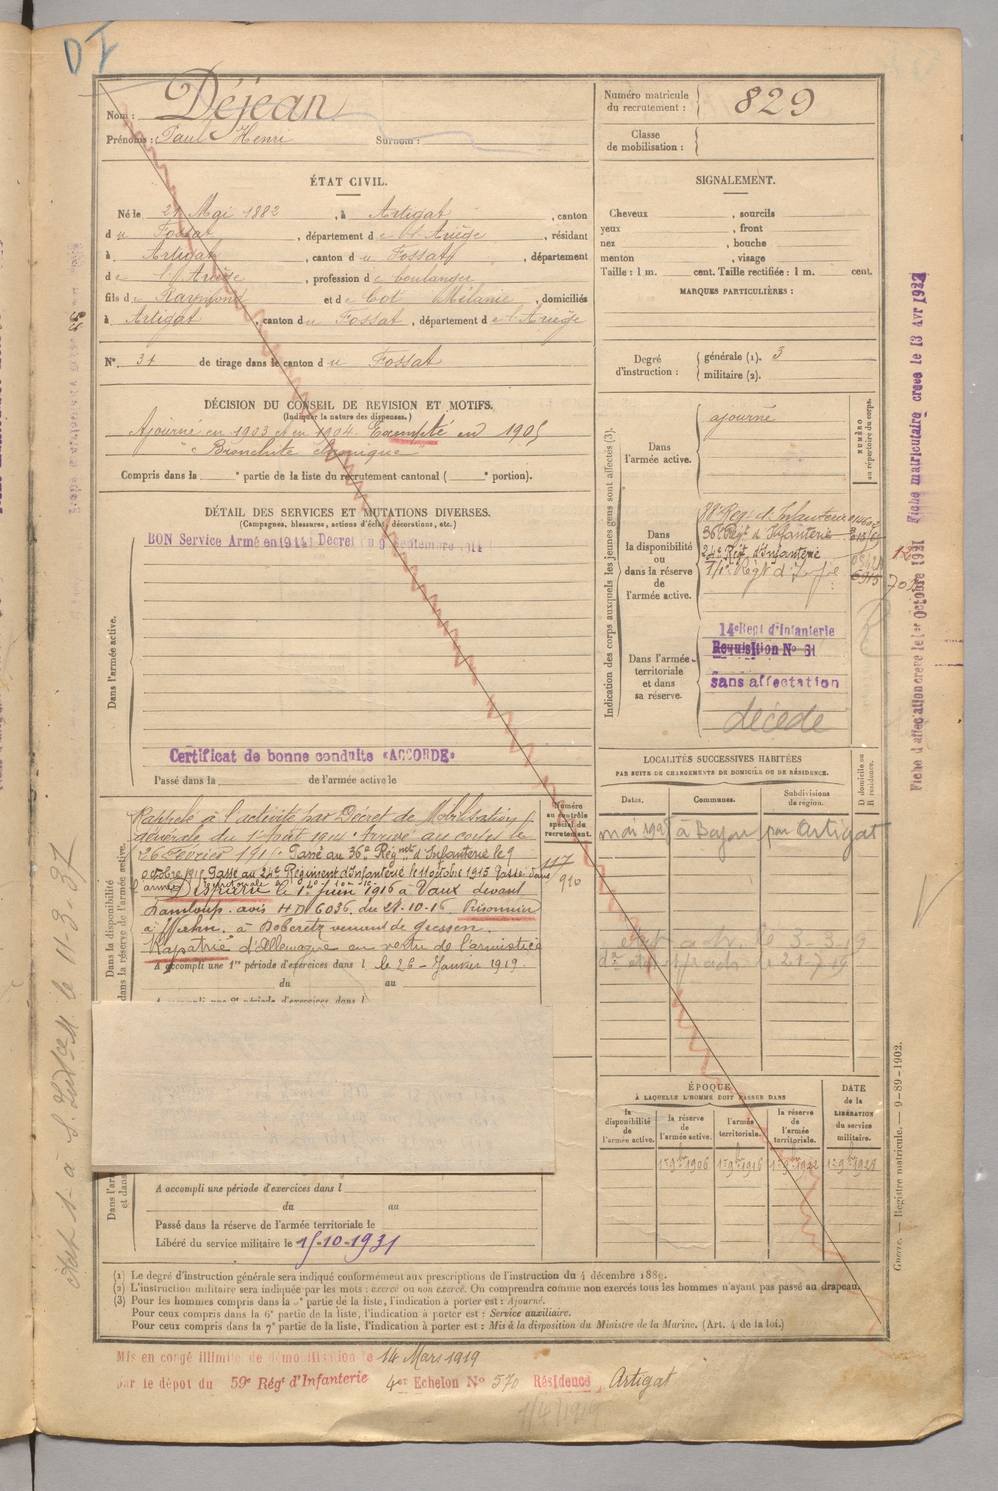 DI
Nom : Déjean
Prénoms : Paul Henri Surnom :
Numéro matricule du recrutement : 829
Classe de mobilisation :
ÉTAT CIVIL.
Né le 21 Mai 1882, à Artigat, canton
du Fossat, département de l'Ariège, résidant
à Artigat, canton du Fossat, département
de l'Ariège, profession de boulanger
fils de Raymond et de Cot Mélanie, domiciliés
à Artigat, canton du Fossat, département de l'Ariège
N° 31 de tirage dans le canton du Fossat
SIGNALEMENT.
Cheveux , sourcils
yeux , front
nez , bouche
menton , visage
Taille : 1 m. cent. Taille rectifiée : 1 m. cent.
MARQUES PARTICULIÈRES :
Degré d'instruction : générale (1). 3
militaire (2).
DÉCISION DU CONSEIL DE REVISION ET MOTIFS.
(Indiquer la nature des dispenses.)
Ajourné en 1903 et en 1904. Exempté en 1905
Bronchite chronique
Compris dans la ° partie de la liste du recrutement cantonal ( ° portion).
DÉTAIL DES SERVICES ET MUTATIONS DIVERSES.
(Campagnes, blessures, actions d'éclat, décorations, etc.)
BON Service Armé en (1914) Décret du 9 septembre 1914
Dans l'armée active.
Certificat de bonne conduite «ACCORDÉ»
Passé dans la de l'armée active le
Indication des corps auxquels les jeunes gens sont affectés (3).
NUMÉRO au répertoire du corps.
Dans l'armée active.
ajourné
Dans la disponibilité ou dans la réserve de l'armée active.
88e Reg. d'Infanterie
36e Régt d'Infanterie
24e Régt d'Infanterie
Dans l'armée territoriale et dans sa réserve.
14e Regt d'Infanterie
Requisition N° 61
sans affectation
décédé
Fiche d'affectation creve le 1er Octobre 1921 Fiche matriculaire creee le 13 Avr 1932
LOCALITÉS SUCCESSIVES HABITÉES
PAR SUITE DE CHANGEMENTS DE DOMICILE OU DE RÉSIDENCE.
Dates. Communes. Subdivisions de région. D domicile ou R résidence.
mai 1925 à Bajou par Artigat
le 3-3-19
le 21-7-19
Dans la disponibilité
dans la réserve de l'armée active.
Numéro au contrôle spécial du recrutement.
117
910
Rappelé à l'activité par Décret de Mobilisation
générale du 1er Août 1914. Arrivé au corps le
26 Février 1915. Passé au 36e Régmt d'Infanterie le 9
octobre 1915. Passé au 24e Régiment d'Infanterie le 11 octobre 1915. Passé dans
l'armée territoriale
Disparu le 1er juin 1916 à Vaux devant
Damloup. avis HD 6036, du 28-10-16 Prisonnier
à Wahn, à Doberetz venant de Giessen.
Rapatrié d'Allemagne en vertu de l'armistice
le 26 - Janvier 1919.
A accompli une 1re période d'exercices dans l
du au
A accompli une 2e période d'exercices dans l
ÉPOQUE
À LAQUELLE L'HOMME DOIT PASSER DANS
la disponibilité de l'armée active.
la réserve de l'armée active.
l'armée territoriale.
la réserve de l'armée territoriale.
DATE de la LIBÉRATION du service militaire.
1er 9bre 1906
1er 9bre 1916
1er 9bre 1922
1er 9bre 1928
A accompli une période d'exercices dans l
du au
Passé dans la réserve de l'armée territoriale le
Libéré du service militaire le 15-10-1931
(1) Le degré d'instruction générale sera indiqué conformément aux prescriptions de l'instruction du 4 décembre 1889.
(2) L'instruction militaire sera indiquée par les mots : exercé ou non exercé. On comprendra comme non exercés tous les hommes n'ayant pas passé au drapeau.
(3) Pour les hommes compris dans la 5e partie de la liste, l'indication à porter est : Ajourné.
Pour ceux compris dans la 6e partie de la liste, l'indication à porter est : Service auxiliaire.
Pour ceux compris dans la 7e partie de la liste, l'indication à porter est : Mis à la disposition du Ministre de la Marine. (Art. 4 de la loi.)
Guerre. — Registre matricule. — 9-89-1902.
Mis en congé illimité de démobilisation le 14 Mars 1919
par le dépôt du 59e Régt d'Infanterie 4e Echelon N° 570 Résidence Artigat
1/4/1919
le 11-3-37